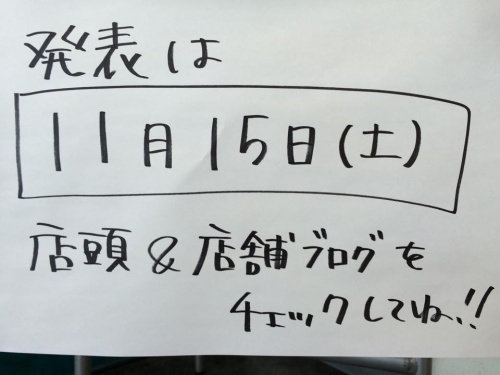 発表は
11月15日(土)
店頭&店舗ブログを
チェックしてね!!